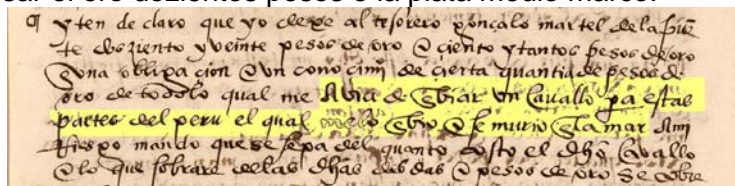 sar el oro dozientos pesos o la plata medio marco.
¶ yten declaro que yo dexe al tesorero gonçalo martel dela fue
te dosziento y veinte pesos de oro e ciento y tantos pesos de oro
e una obligacion e un conocimi de cierta quantia de pesos de
oro de todo lo qual me avia de enbiar un cavallo pa estas
partes del peru el qual me lo enbio e se murio en la mar a mi
Riesgo mando que se sepa del quanto costo el dho cavallo
e lo que sobrare de las dhas debdas e pesos de oro se cobre